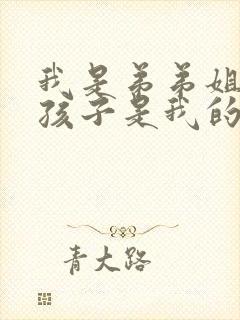 我是弟弟姐
孩子是我的
青大路